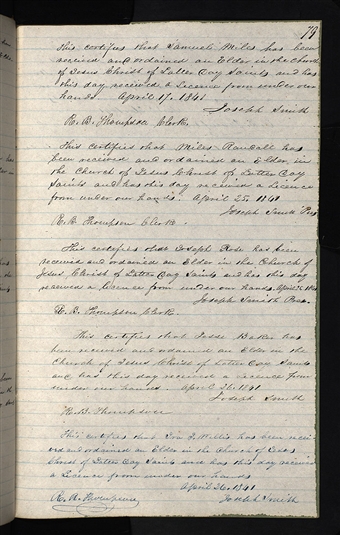 79
This certifies that Samuel Miles has been
received and ordained an Elder in the Church
of Jesus Christ of Latter Day Saints and has
this day received a Licence from under our
hands April 17. 1841
Joseph Smith
R. B. Thompson Clerk.
This certifies that Miles Randall has
been received and ordained an Elder, in
the Church of Jesus Christ of Latter Day
Saints and has this day received a Licence
from under our hands. April 25. 1841
Joseph Smith Pres
R. B. Thompson Clerk.
This certifies that Joseph Rose has been
received and ordained an Elder in the Church of
Jesus Christ of Latter Day Saints and has this day
received a Licence from under our hands. April 25 1841
Joseph Smith Pres.
R. B. Thompson Clerk.
This certifies that Jesse Baker has
been received and ordained an Elder in the
Church of Jesus Christ of Latter Day Saints
and has this day received a Licence from
under our hands April 26. 1841
Joseph Smith
R. B. Thompson
This certifies that Ira J. Willis has been recei-
ved and ordained an Elder in the Church of Jesus
Christ of Latter Day Saints and has this day received
a Licence from under our hands
April 26. 1841
R. B. Thompson Joseph Smith